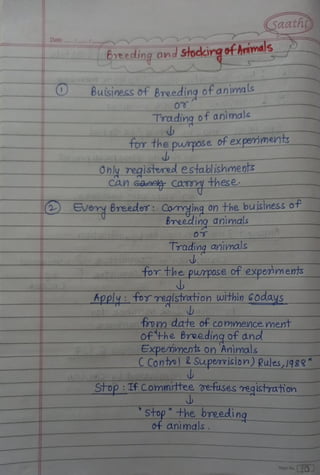 Saathi
Date
Breeding and Stocking of Animals
① Buisiness of Breeding of animals
or
Trading of animals
↓
for the purpose of experiments
↓
Only registered establishments
can carry these.
② Every Breeder: Carrying on the buisness of
Breeding animals
or
Trading animals
↓
for the purpose of experiments
↓
Apply: for registration within 60days
↓
from date of commencement
of "the Breeding of and
Experiments on Animals
(Control & Supervision) Rules, 1988"
↓
Stop: If Committee refuses registration
↓
"Stop" the breeding
of animals.